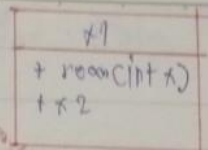 x1
+ room(int x)
+ x 2